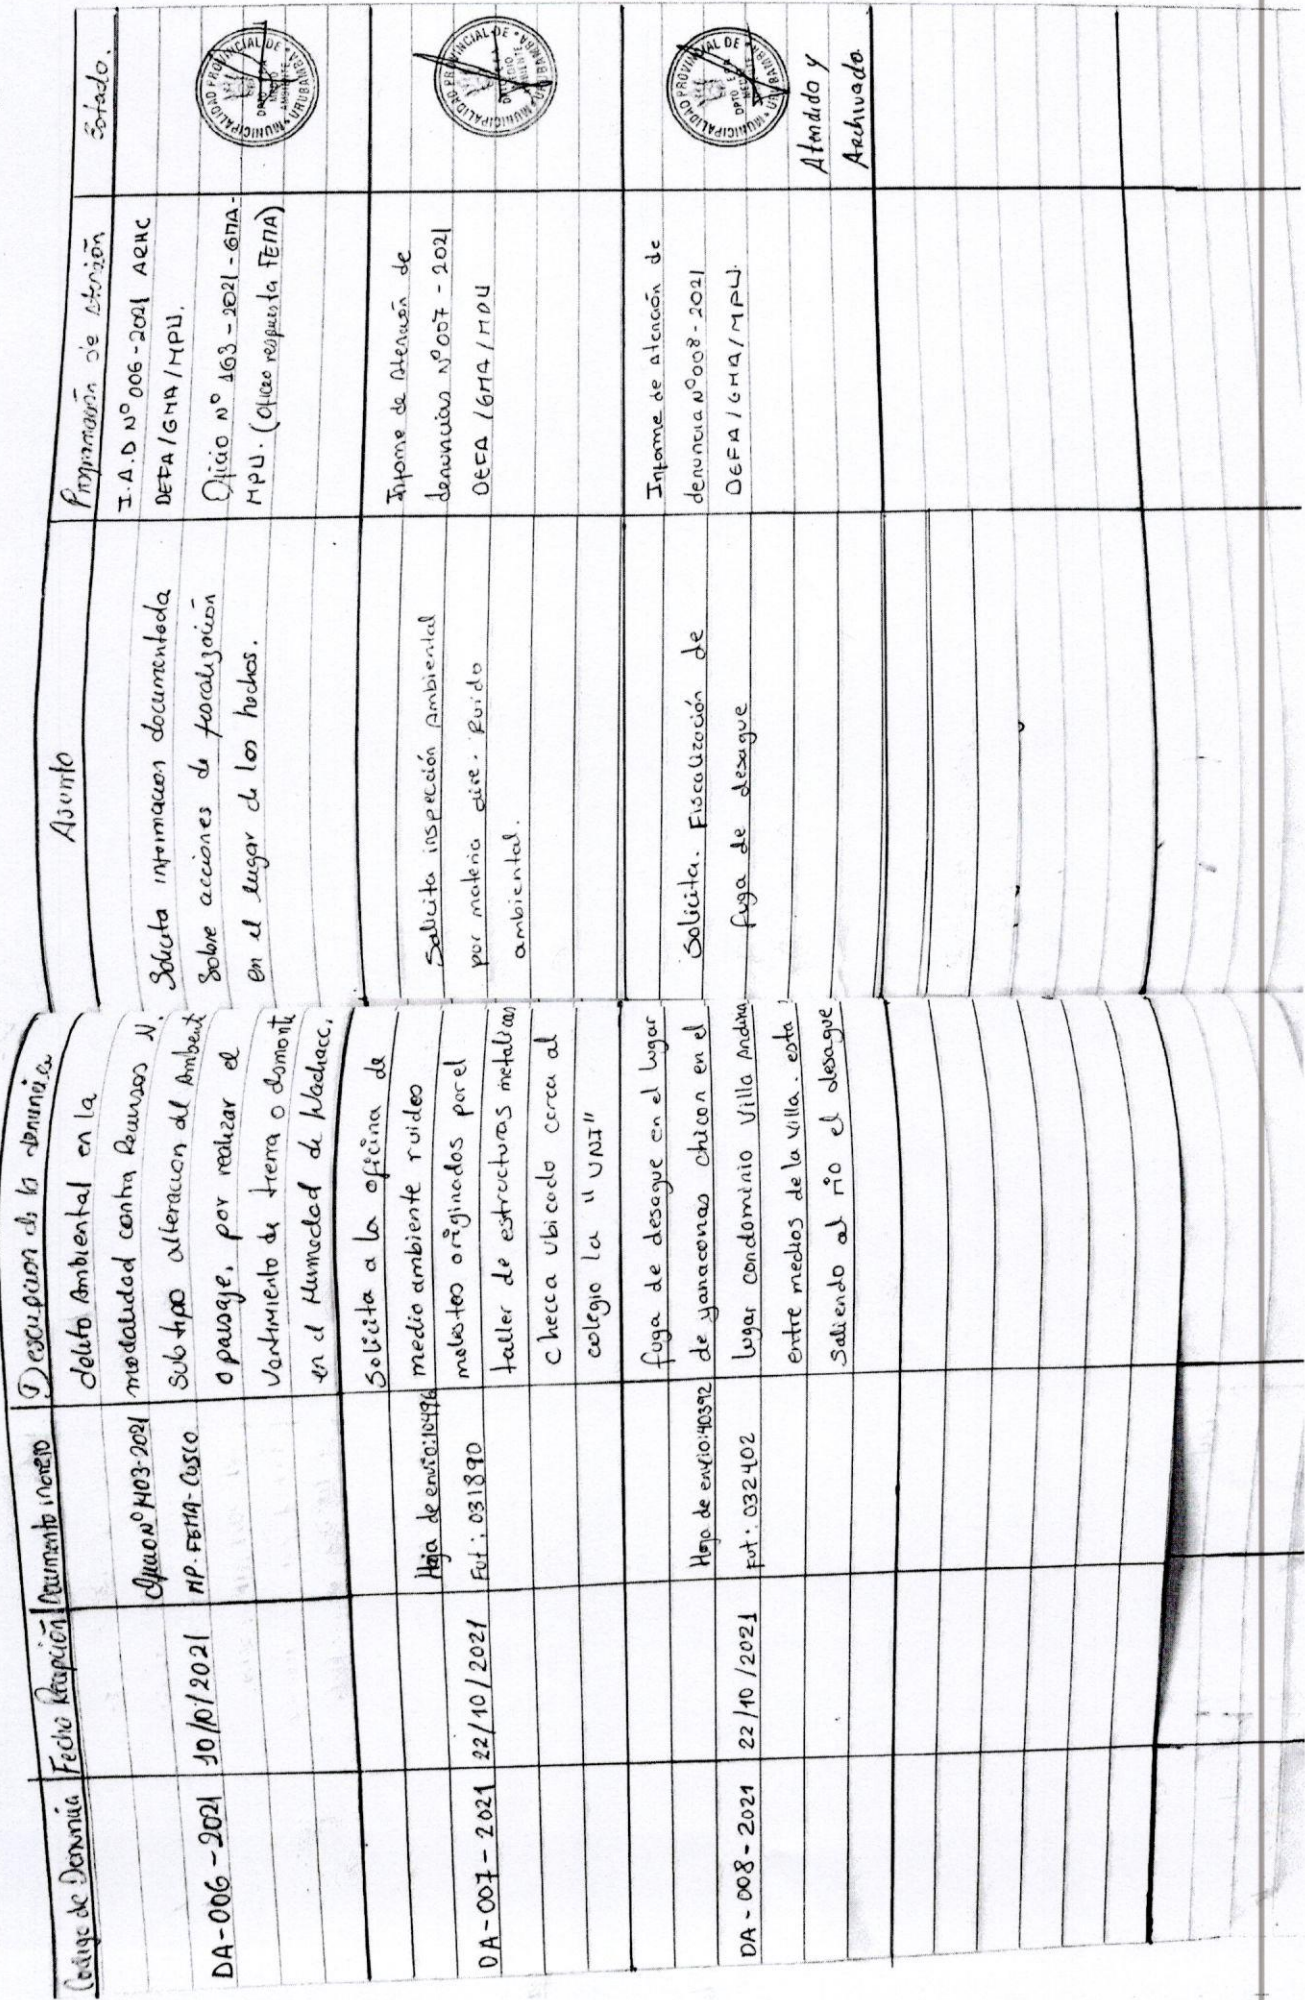 Codigo de Denuncia
Fecha Recepción
Documento ingreso
Descripcion de la denuncia
Asunto
Programación de Atención
Estado.
DA-006-2021
10/10/2021
Oficio N° 1403-2021
MP. FEMA-Cusco
delito Ambiental en la
modalidad contra Recursos N.
Sub tipo alteracion del Ambient
o paisaje, por realizar el
vertimiento de tierra o desmonte
en el Humedad de Wachacc.
Solicita informacion documentada
Sobre acciones de fiscalización
en el lugar de los hechos.
I.A.D N° 006-2021 ARHC
DEFA/GMA/MPU.
Oficio N° 463-2021-GMA-
MPU. (Oficio respuesta FEMA)
MUNICIPALIDAD PROVINCIAL DE URUBAMBA
MEDIO
AMBIENTE
DA-007-2021
22/10/2021
Hoja de envio: 10496
Fut: 031890
Solicita a la oficina de
medio ambiente ruidos
molestos originados por el
taller de estructuras metalicas
Checca ubicado cerca al
colegio la "UNI"
Salicita inspección Ambiental
por materia dire. Ruido
ambiental.
Informe de Atención de
denuncias N° 007-2021
OEFA/GMA/MPU
MUNICIPALIDAD PROVINCIAL DE URUBAMBA
MEDIO
AMBIENTE
DA-008-2021
22/10/2021
Hoja de envio: 40392
Fut: 032402
fuga de desague en el lugar
de yanaconas chicon en el
lugar condominio Villa Andina
entre medios de la villa. esta
Saliendo al rio el desague
Solicita. Fiscalización de
fuga de desague
Informe de Atención de
denuncia N° 008-2021
OEFA/GMA/MPU.
MUNICIPALIDAD PROVINCIAL DE URUBAMBA
MEDIO
Atendido y
Archivado